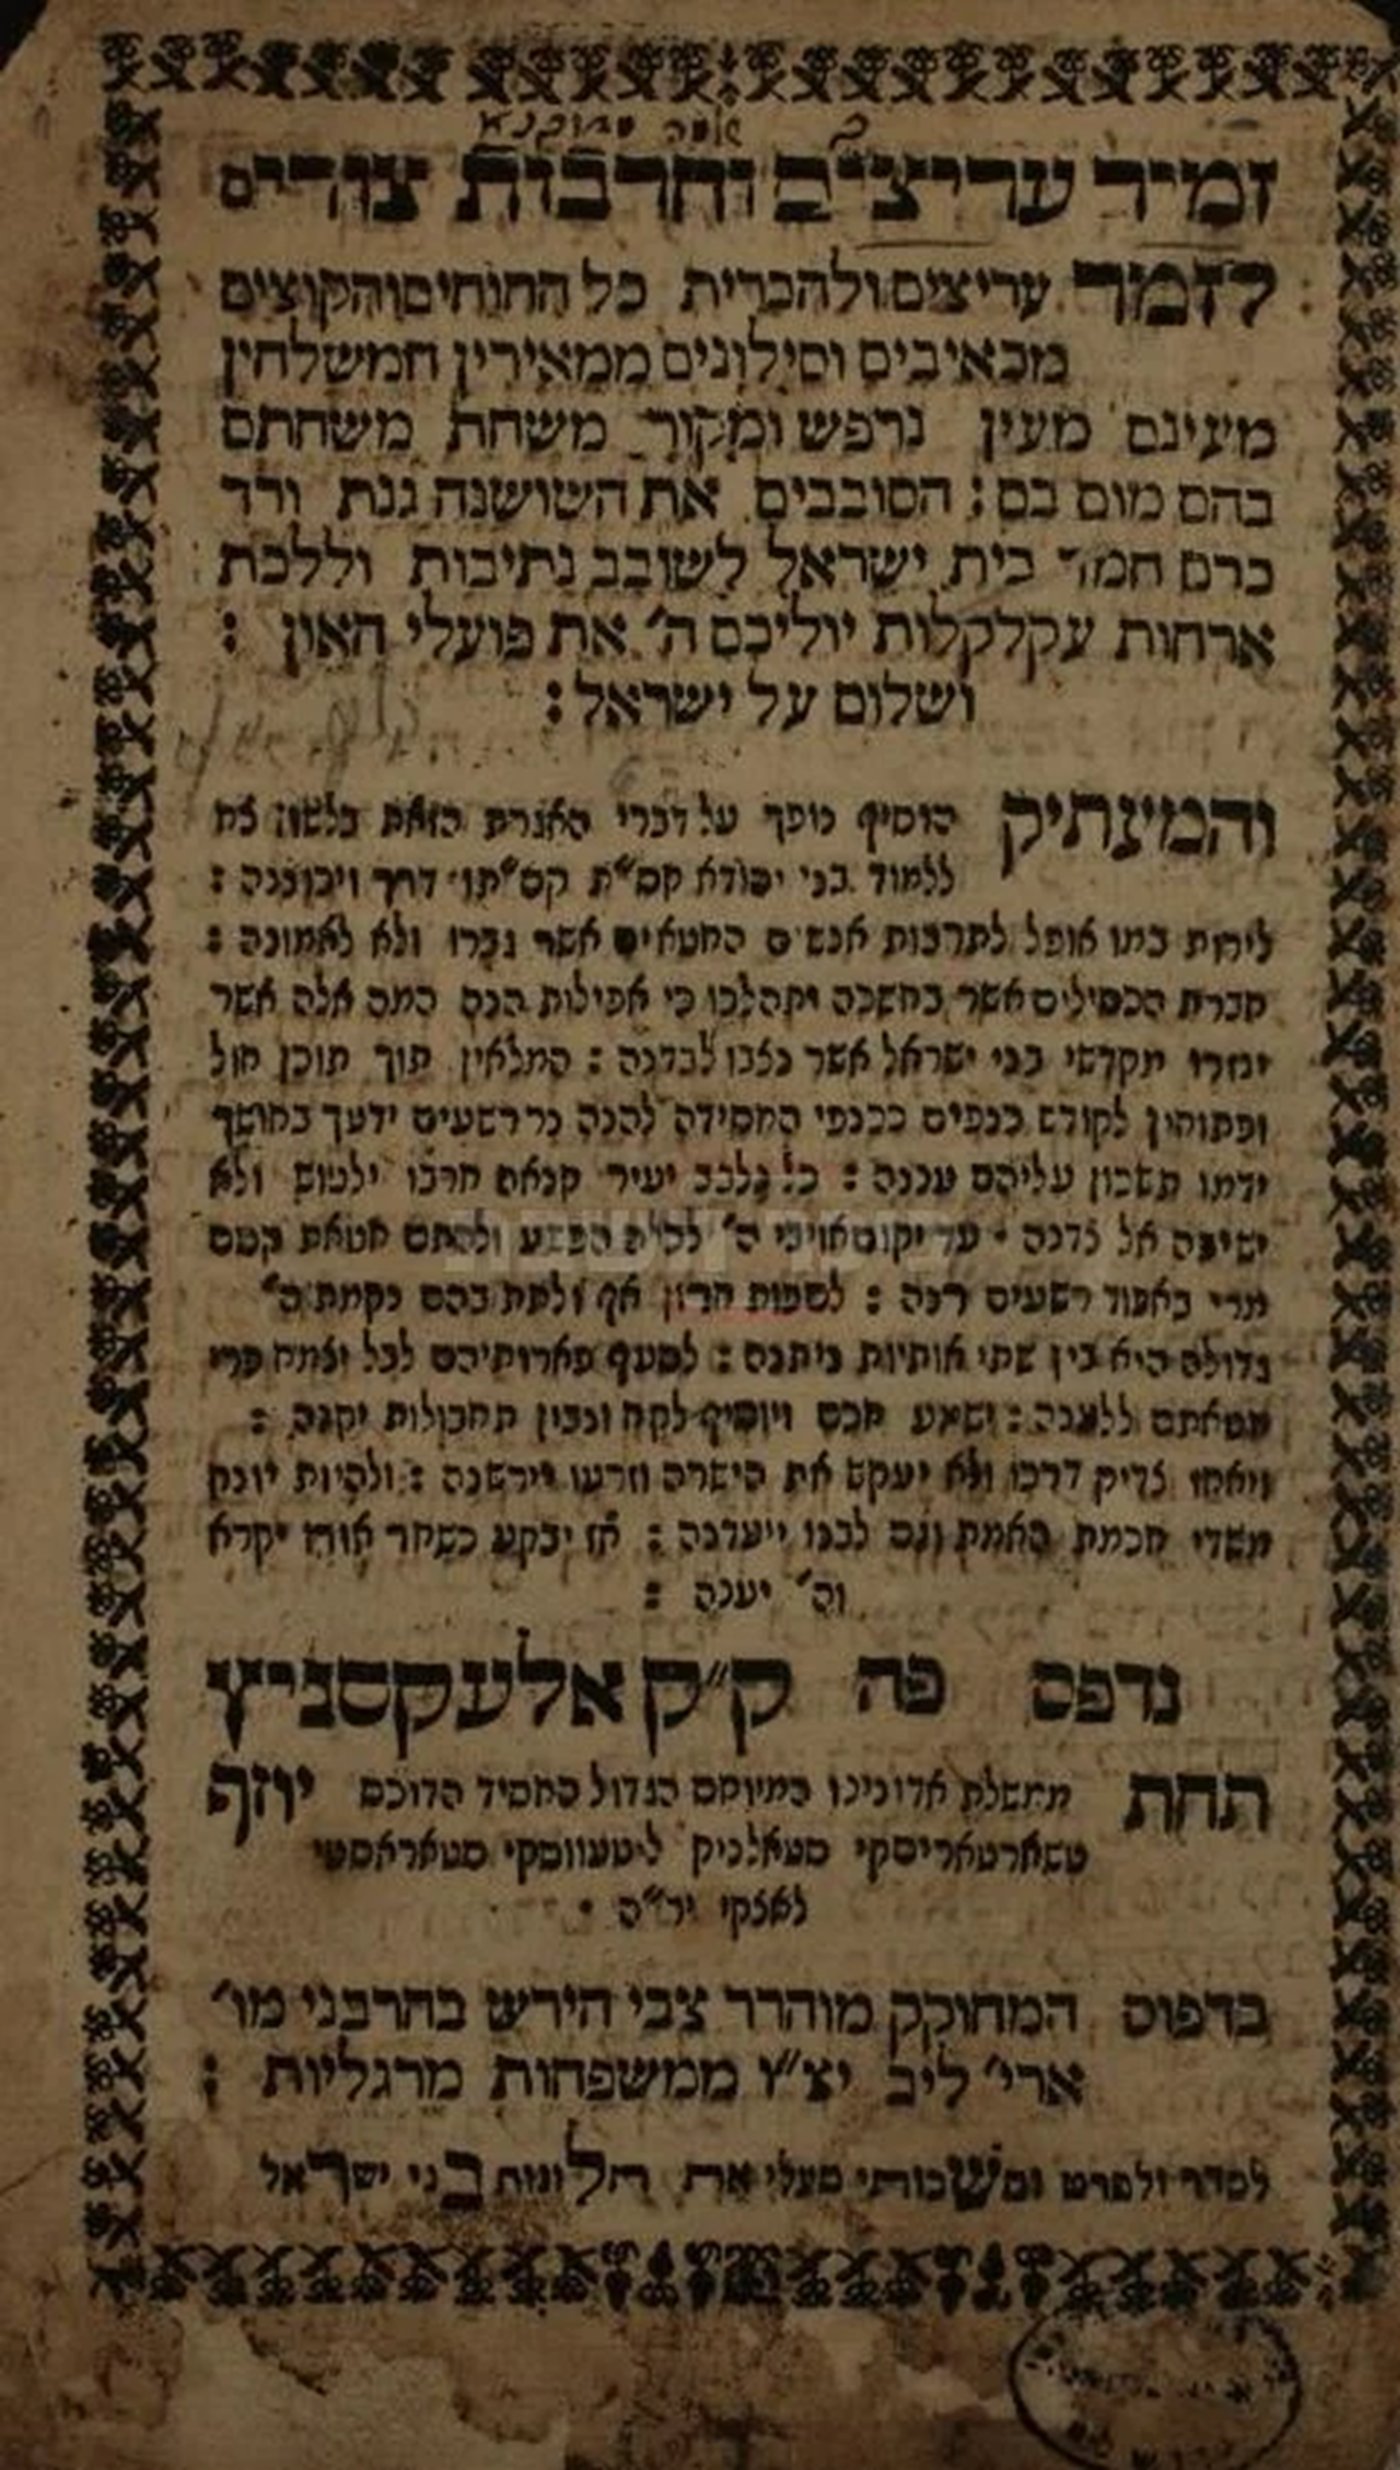 זמיר עריצים וחרבות צורים
לזמר עריצים ולהכרית כל החוחים והקוצים
מכאיבים וסילונים ממאירין חמשלחין
מעינם מעין נרפש ומקור משחת משחתם
בהם מום בם : הסובבים את השושנה גנת ורד
כרם חמר בית ישראל לשובב נתיבות וללכת
ארחות עקלקלות יוליכם ה' את פועלי האון :
ושלום על ישראל :
והמעתיק הוסיף נופך על דברי האגרת הזאת בלשון צח
ללמוד בני יהודא קס"ת קס"תו דרך ויכוננה :
לירות במו אופל לתרבות אנשים החטאים אשר גברו ולא לאמונה :
חברת הכסילים אשר בחשכה יתהלכו כי אפילות הנה המה אלה אשר
יגורו מקדשי בני ישראל אשר נצבו לבדנה : המלאין תוך תוכן חול
ופתוחין לקודש כנפים ככנפי החסידה להנה נר רשעים ידעך בחושך
ידמו תשכון עליהם עננה : כל נלבב יעיר קנאת חרבו ילטוש ולא
ישיבה אל נדנה עד יקום אויבי ה' לכלא הפשע ולהתם חטאת קסם
מרי באבוד רשעים רנה : לספות חרון אף ולתת בהם נקמת ה'
גדולה היא בין שתי אותיות ניתנה : לסעף פארותיהם לבל יצמח פרי
חטאתם ללענה : ישמע חכם ויוסיף לקח ונבון תחבולות יקנה :
ויאחז צדיק דרכו ולא יעקש את הישרה וזרעו יירשנה : ולהיות יונק
משדי חכמת האמת וגם לבנו ייעדנה : אז יבקע כשחר אורו יקרא
וה' יענה :
נדפס פה ק"ק אלעקסניץ
תחת ממשלת אדונינו המיוחס הגדול החסיד הדוכס יוזף
טשארטאריסקי סטאלניק ליטעווסקי סטאראסטי
לאצקי יר"ה
בדפוס המחוקק מוהרר צבי הירש בהרבני מו'
ארי' ליב יצ"ו ממשפחות מרגליות :
לסדר ולפרט והשכותי מעלי את תלונות בני ישראל